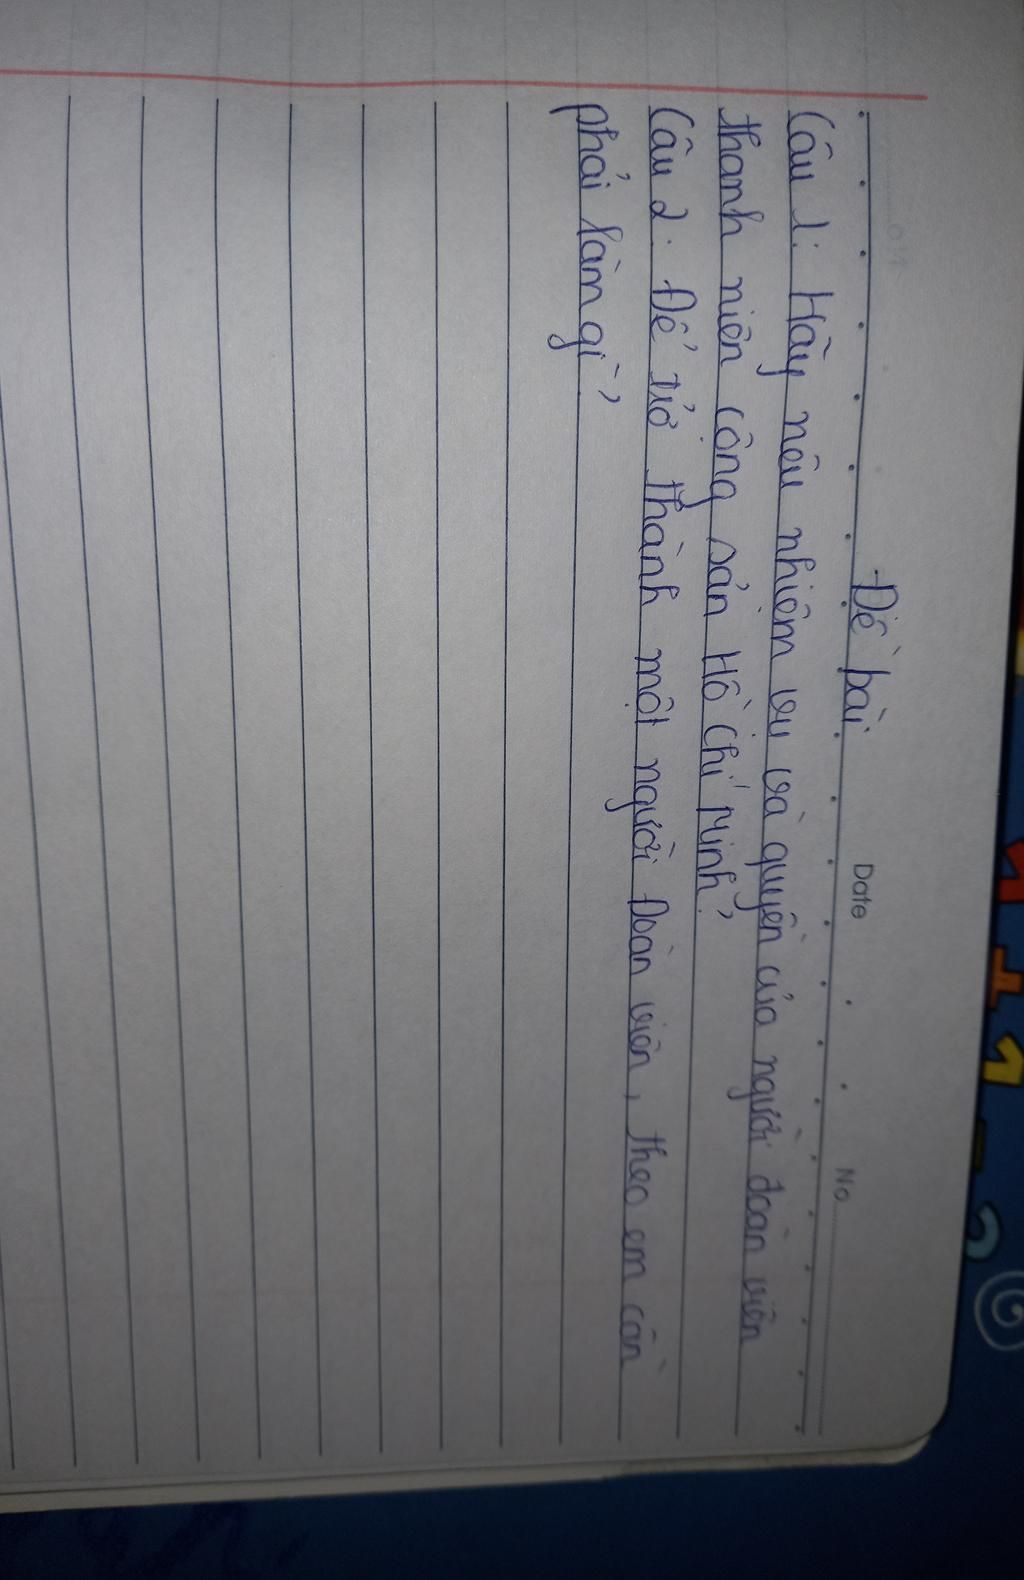 Date No.
Đề bài
Câu 1: Hãy nêu nhiệm vụ và quyền của người đoàn viên
thanh niên cộng sản Hồ Chí Minh?
Câu 2. Để trở thành một người Đoàn viên, theo em cần
phải làm gì?